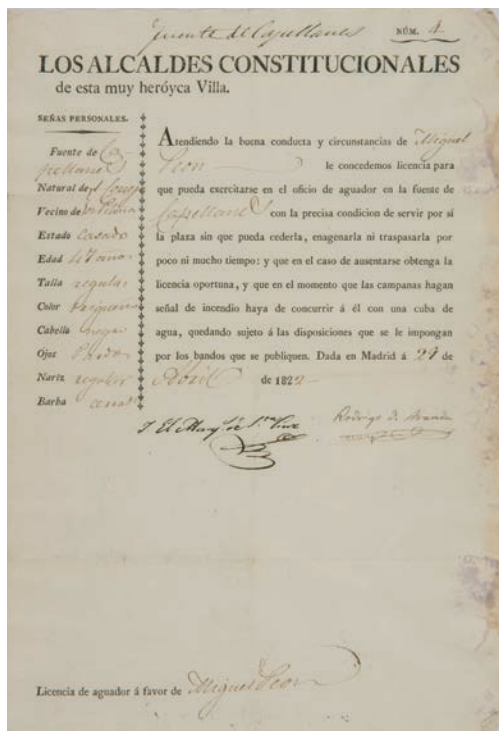 Fuente de Capellanes
NÚM. 4
LOS ALCALDES CONSTITUCIONALES
de esta muy heróyca Villa.
SEÑAS PERSONALES.
Fuente de Ca-
pellanes
Natural de
Vecino de
Estado casado
Edad 47 años
Talla regular
Color Trigueño
Cabello negro
Ojos Pardos
Nariz regular
Barba
Atendiendo la buena conducta y circunstancias de Miguel
Leon le concedemos licencia para
que pueda exercitarse en el oficio de aguador en la fuente de
Capellanes con la precisa condicion de servir por sí
la plaza sin que pueda cederla, enagenarla ni traspasarla por
poco ni mucho tiempo: y que en el caso de ausentarse obtenga la
licencia oportuna, y que en el momento que las campanas hagan
señal de incendio haya de concurrir á él con una cuba de
agua, quedando sujeto á las disposiciones que se le impongan
por los bandos que se publiquen. Dada en Madrid á 29 de
Abril de 1822
Rodrigo de Aranda
Licencia de aguador á favor de Miguel Leon